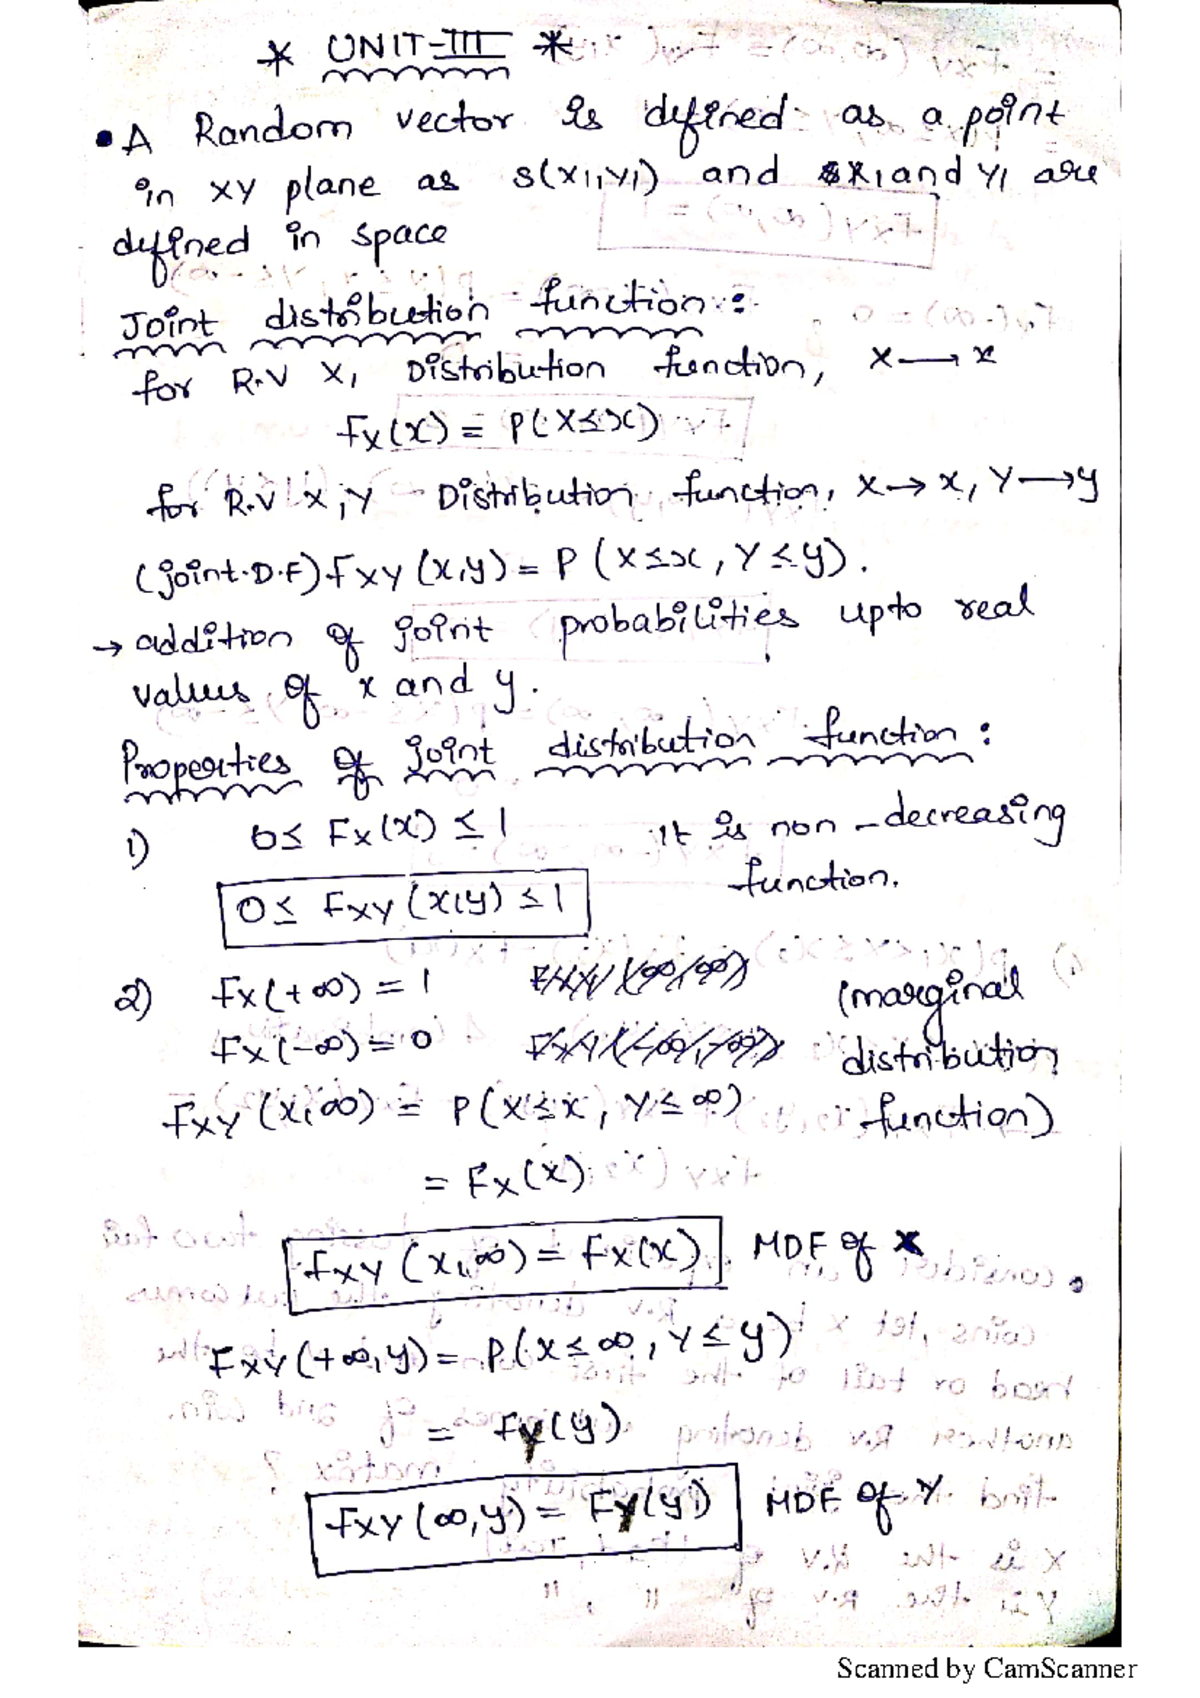 * UNIT-III *
• A Random vector is defined as a point
in xy plane as s(x1,y1) and x1 and y1 are
defined in space
Joint distribution function :
for R.V X, Distribution function, X → x
Fx(x) = P(X≤x)
for R.V X,Y - Distribution function, X→x, Y→y
(joint.D.F) FXY (x,y) = P (X≤x, Y≤y).
→ addition of joint probabilities upto real
values of x and y.
Properties of joint distribution function :
1) 0≤ Fx(x) ≤1 it is non-decreasing
function.
0≤ FXY (x,y) ≤1
2) Fx(+∞) = 1 (marginal
Fx(-∞) = 0 distribution
FXY (x,∞) = P(X≤x, Y≤∞) function)
= Fx(x)
FXY (x,∞) = Fx(x) MDF of X
FXY (+∞,y) = P(x≤∞, Y≤y)
= FY(y)
FXY (∞,y) = FY(y) MDF of Y
Scanned by CamScanner